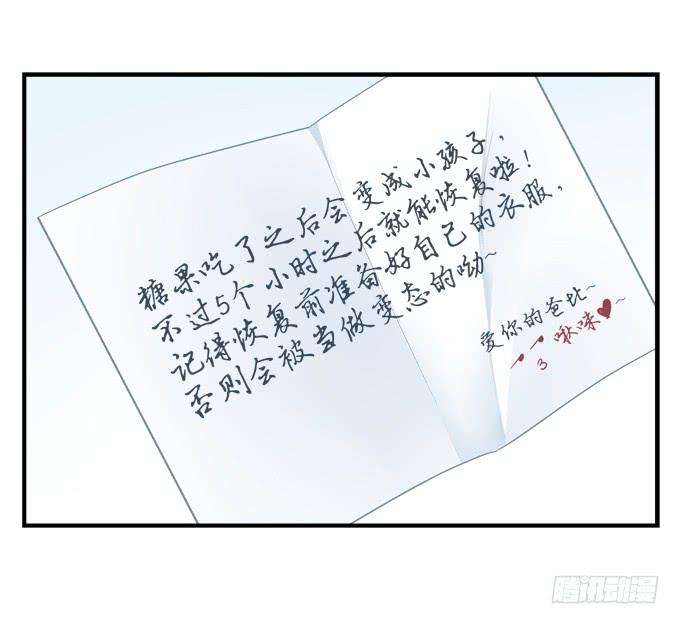 糖果吃了之后会变成小孩子，
不过5个小时之后就能恢复啦！
记得恢复前准备好自己的衣服，
否则会被当做变态的呦~
爱你的爸比~
3 啾咪♥~
腾讯动漫